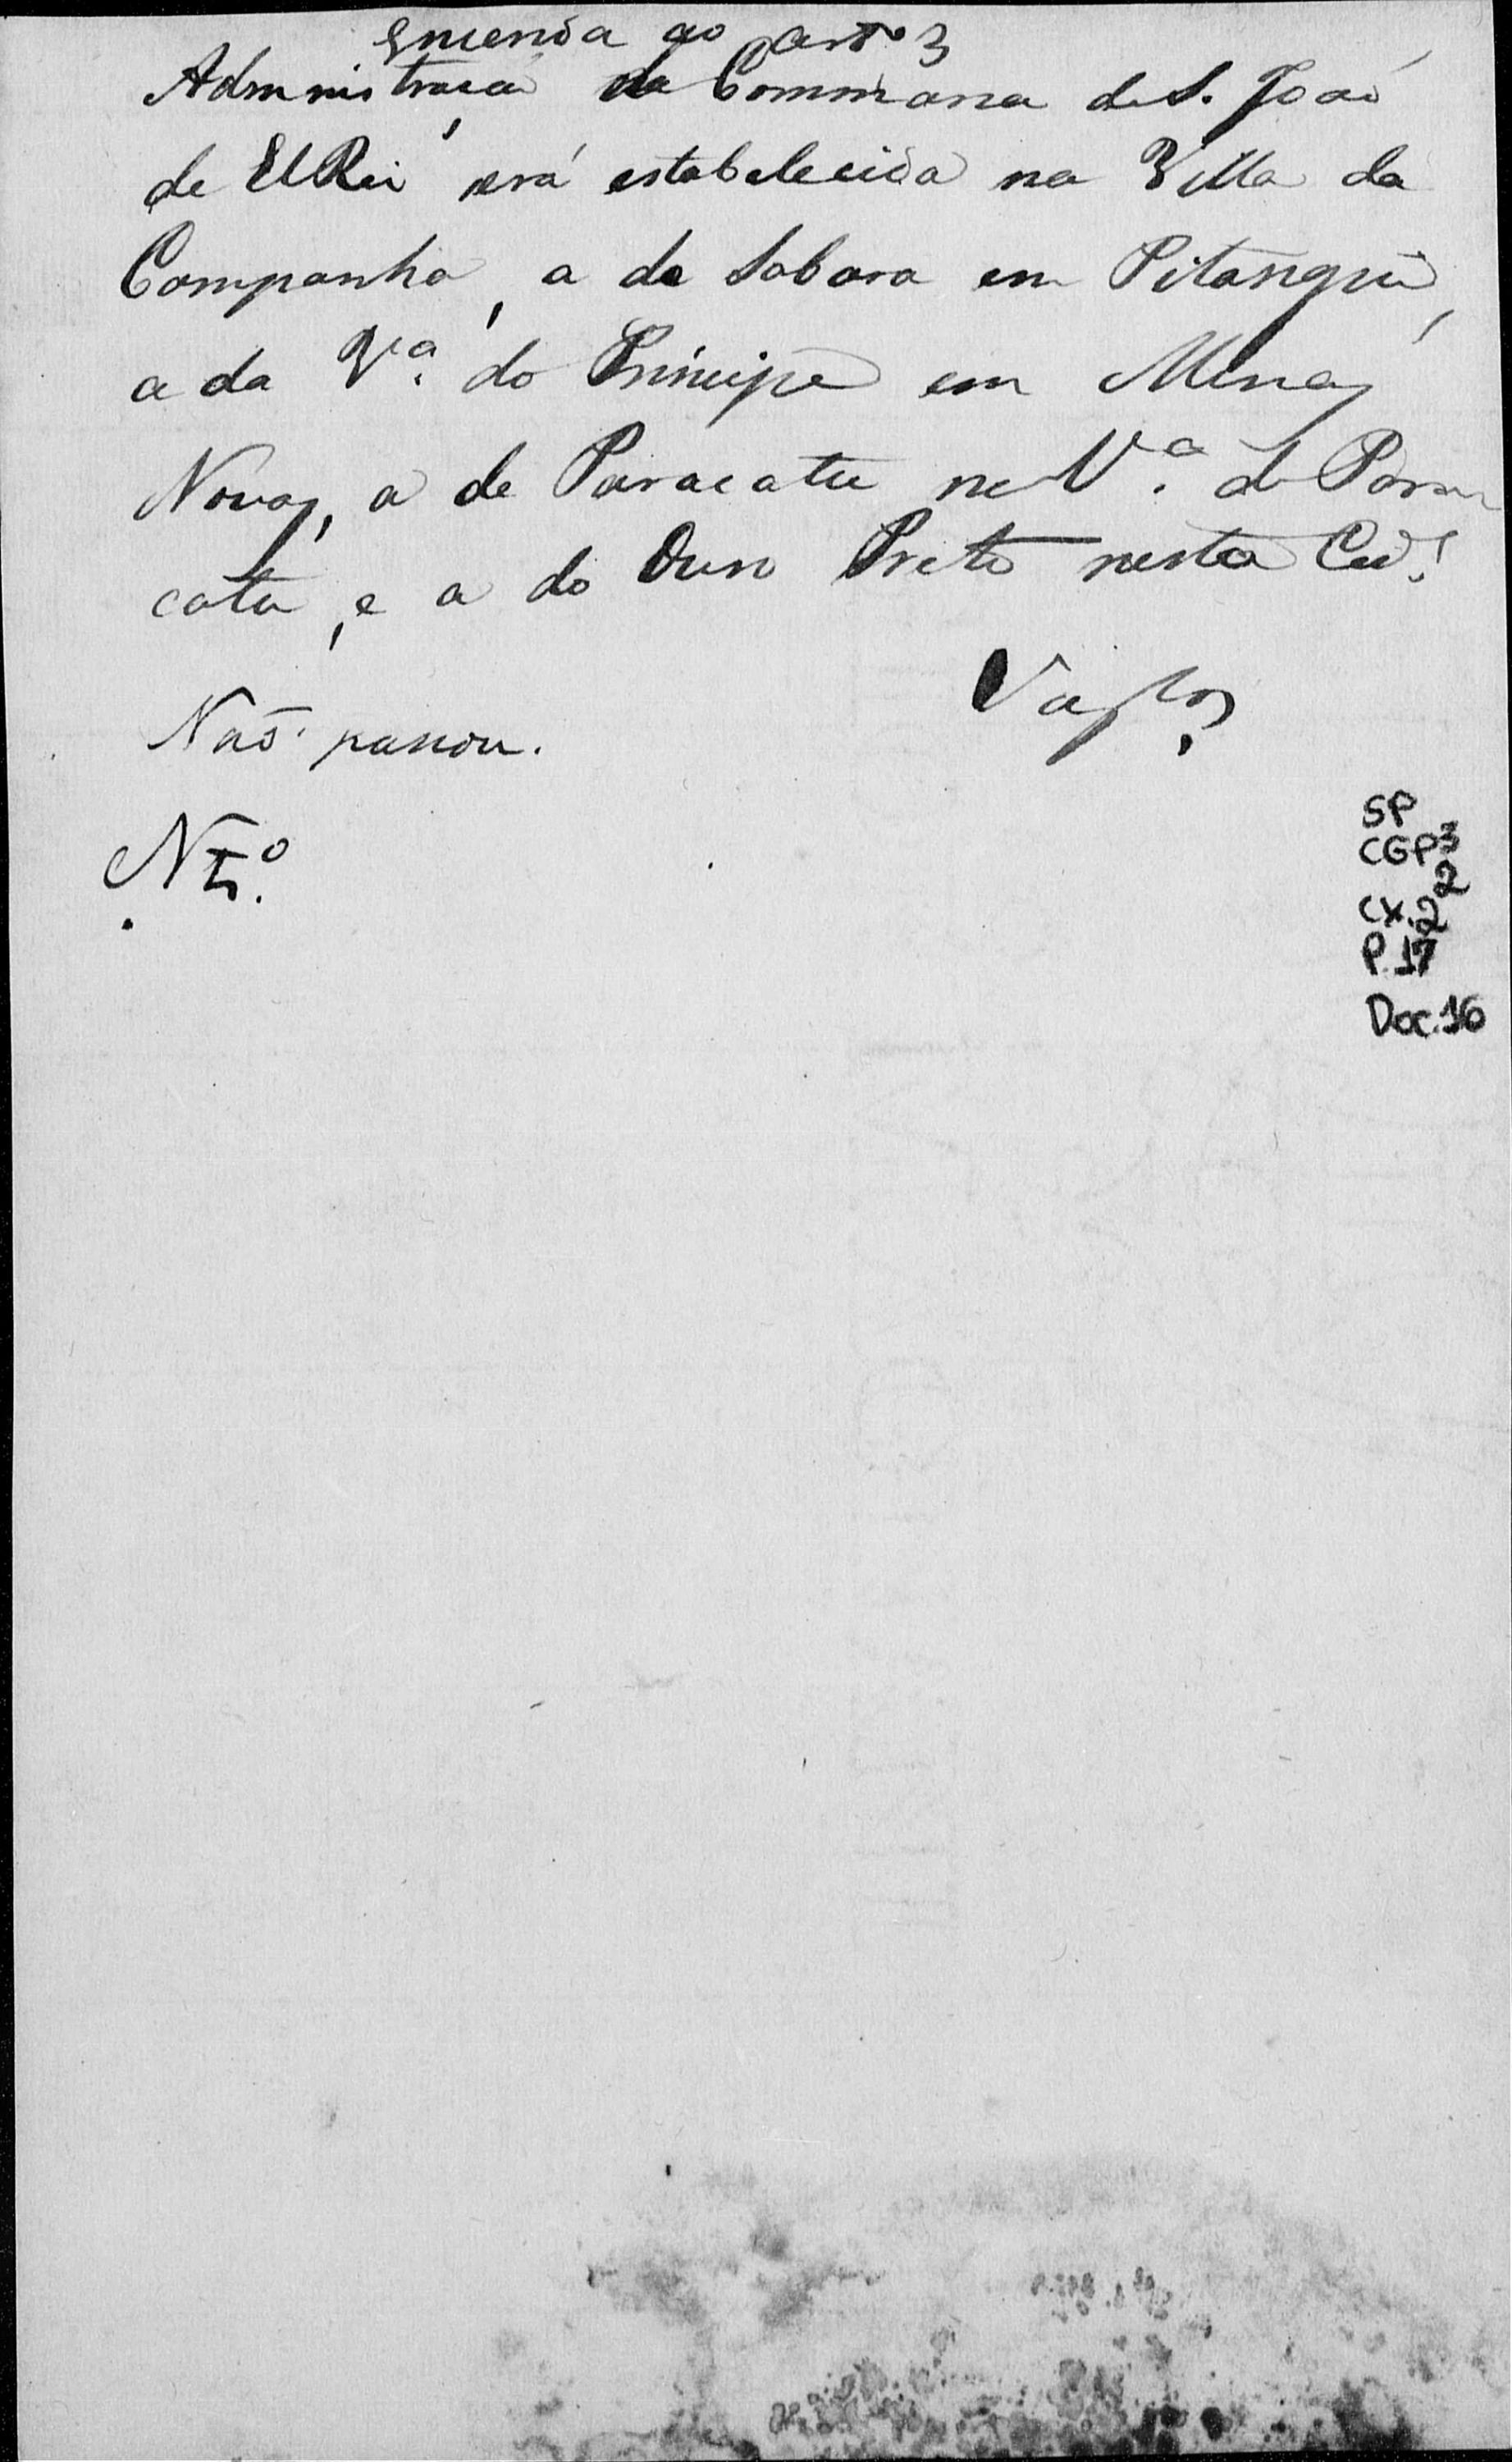 Emenda ao Art.º 3
Administração da Commarca de S. João
de ElRei será estabelecida na Villa da
Campanha, a de Sabara em Pitangui,
a da Vª. do Principe em Minas
Novas, a de Paracatu na Vª. de Para
catu, e a do Ouro Preto nesta Cid.ᵉ
Vasᶜᵒˢ
Não passou.
SP
CGP3
2
CX.2
P.17
Doc.16